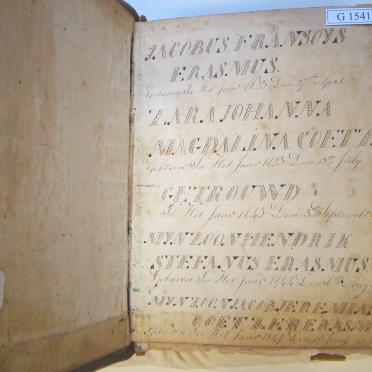 G 1541
JACOBUS, FRANSOYS
ERASMUS.
Geboren In Het Jaar 1823 Den 27ste
JOHANNA
MAGDALINA COET
Geboren In Het Jaar 1823 Den July
GETROUWD
In Het Jaar 1843 Den September
MYN ZOON HENDRIK
STEFANUS ERASMUS
Geboren In Het Jaar 1844 Den
MYN ZOON JACOB JEREMIA
COETZEER ERASM
Geboren In Het Jaar 1847 Den